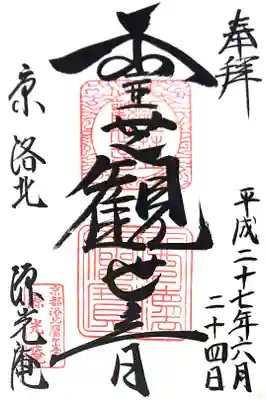 奉拝
平成二十七年六月
二十四日
霊芝観世音
京 洛北 源光庵